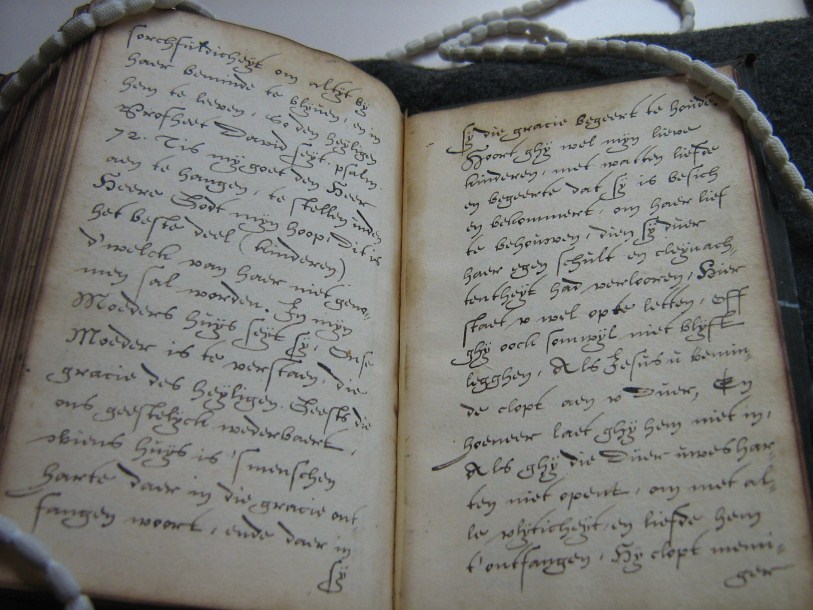 sorchfuldicheyt om altyt by
haer beminde te blyven, en in
hem te leven, so den heyligen
Propheet David seyt. psalm.
72. Tis my goet den Heer
aen te hangen, te stellen inden
Heere Godt myn hoop, Dit is
het beste deel (kinderen)
d'welck van haer niet geno-
men sal worden. In myn
Moeders huys seyt sy, Onse
Moeder is te verstaen, die
gracie des heyligen Geests die
ons geestelyck wederbaert,
wiens huys is 'smenschen
harte daer in die gracie ont
fangen woort, ende daer in
sy
sy die gracie begeert te houde.
Hoort ghy wel myn lieve
kinderen, met watten liefde
en begeerte dat sy is besich
en bekommert, om haer lief
te behouwen, dien sy duer
haer egen schult en cleynach-
tentheyt had verlooren, Hier
staet u wel op te letten, off
ghy oock somwyl niet blyft
legghen, Als Jesus u bemin-
de clopt aen u duer, En
hoeneer laet ghy hem niet in,
Als ghy die duer uwes har-
ten niet opent, om met al-
le vlyticheyt en liefde hem
t'ontfangen, Hy clopt meni-
ger